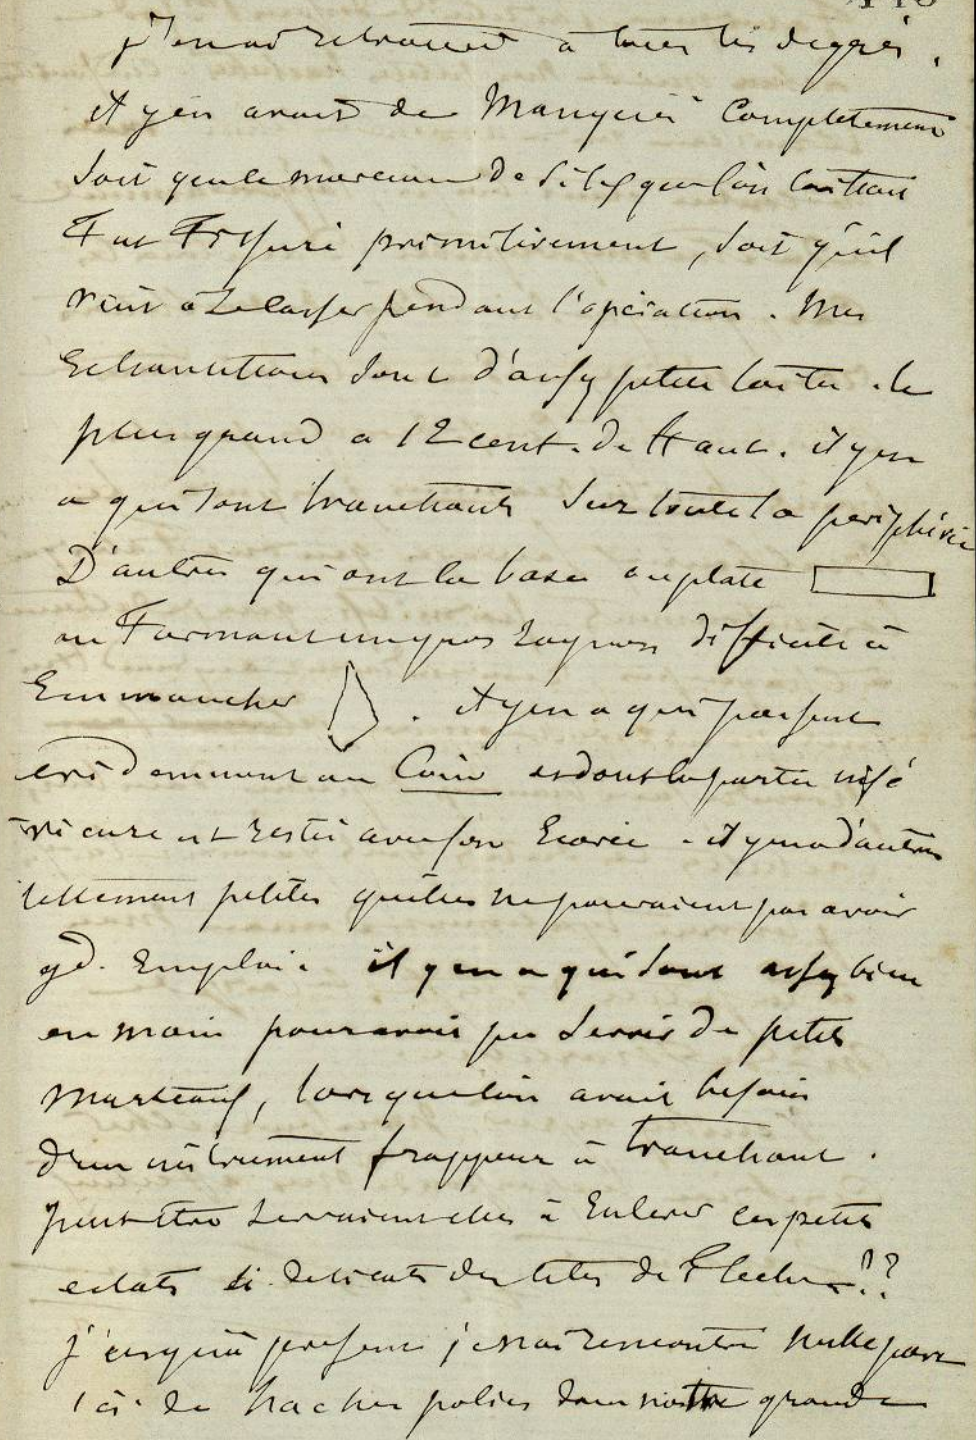 j'en ai retrouvé à tous les degrés.
il y en avait de manquées complètement
soit que le morceau de silex que l'on taillait
Fut Fissuré primitivement, soit qu'il
vint à se casser pendant l'opération. Mes
Echantillons sont d'assez petite taille. le
plus grand a 12 cent. de Haut. il y en
a qui sont tranchants sur toute la périphérie
D'autres qui ont la base applatie
ou Formant un gros difficile à
Emmancher . il y en a qui passent
évidemment au Coin et dont la partie infé
rieure est restée avec son Ecorce. il y en a d'autres
tellement petites qu'elles ne pouvaient pas avoir
gd. Emploi. il y en a qui sont assez bien
en main pour avoir pu servir de petits
marteaux, lorsque l'on avait besoin
d'un instrument frappeur à tranchant.
peut-être servaient elles à Enlever ces petits
eclats si délicats des têtes de Flèches ??
jusqu'à présent je n'ai rencontré nulle part
ici de haches polies dans notre grande